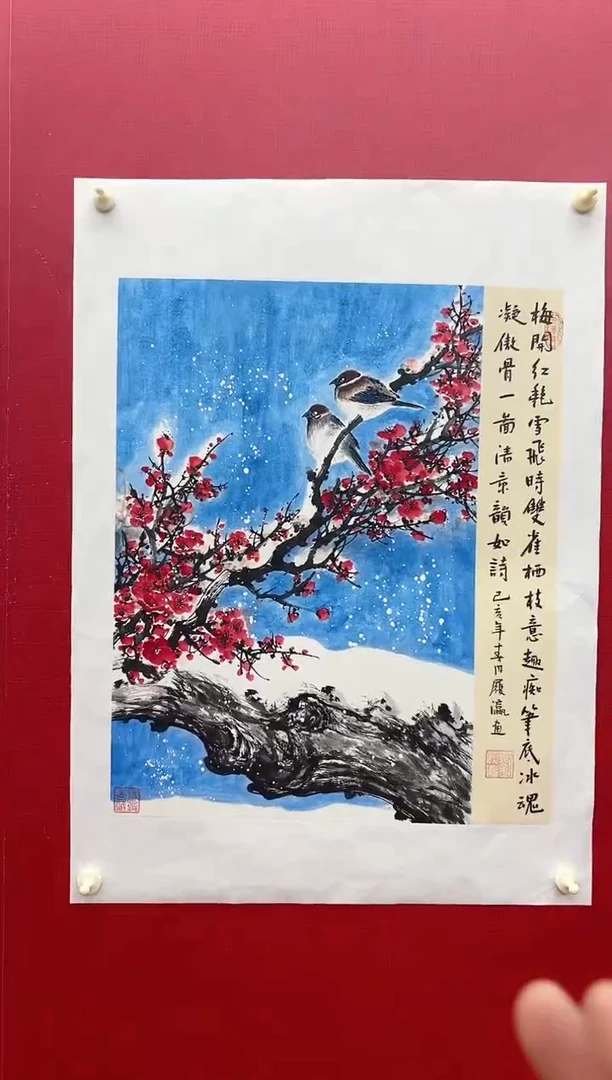 梅開紅艷雪飛時雙雀栖枝意趣痴筆底冰魂
凝傲骨一圖清京韻如詩 己亥年春月履瀛畫